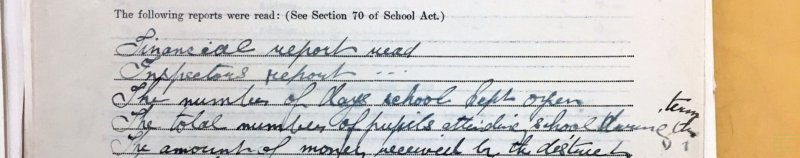 The following reports were read: (See Section 70 of School Act.)
Financial report read
Inspectors report ...
The number of days school kept open
The total number of pupils attending school during term
The amount of money received by the district